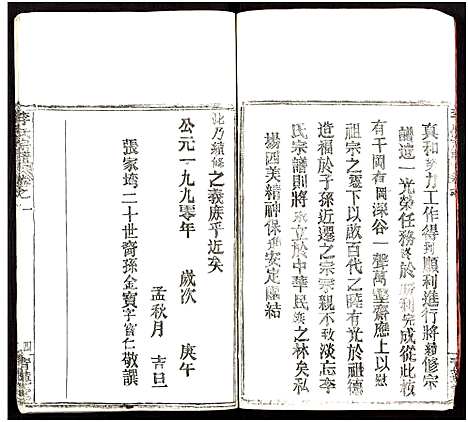 真和努力工作得到順利進行將續修宗
譜這一光榮任務終於勝利完成從此後
有千岡有岡深谷一聲萬聖齋應上以慰
祖宗之靈下以啟百代之曉有光於祖德
造福於子孫近遷之宗宗親不致淡忘李
氏宗譜則將永立於中華民族之林矣私
揚西美精神保進安定團結
此乃續修之義庶乎近矣
公元一九九零年 歲次 庚午
孟秋月 吉旦
張家垮二十世裔孫金寶字官仁敬譔